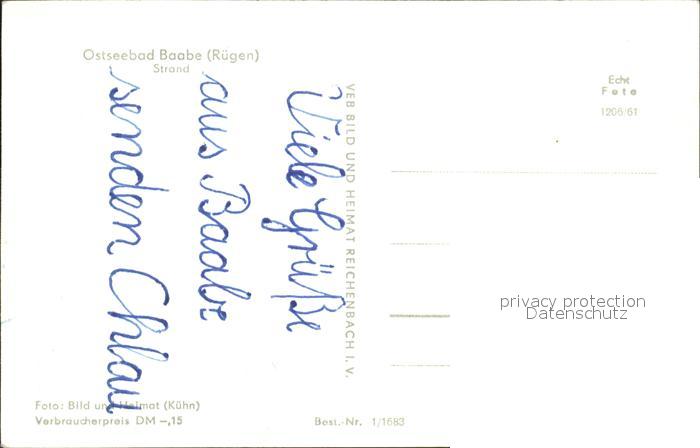 Ostseebad Baabe (Rügen)
Strand
Viele Grüße
aus Baabe
senden
VEB BILD UND HEIMAT REICHENBACH I. V.
Echt
Foto
1206/61
privacy protection
Datenschutz
Foto: Bild und Heimat (Kühn)
Verbraucherpreis DM –,15
Best.-Nr. 1/1683